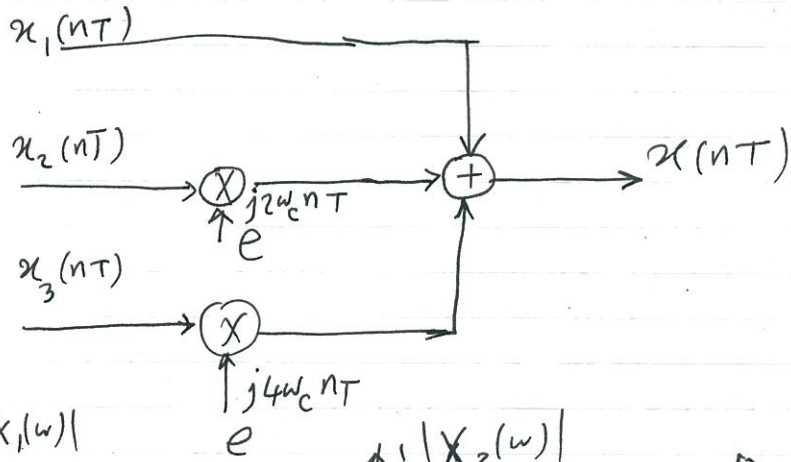 x₁(nT)
x₂(nT)
X
e^{j2ω_c nT}
+
x(nT)
x₃(nT)
X
e^{j4ω_c nT}
X₁(ω)|
|X₂(ω)|